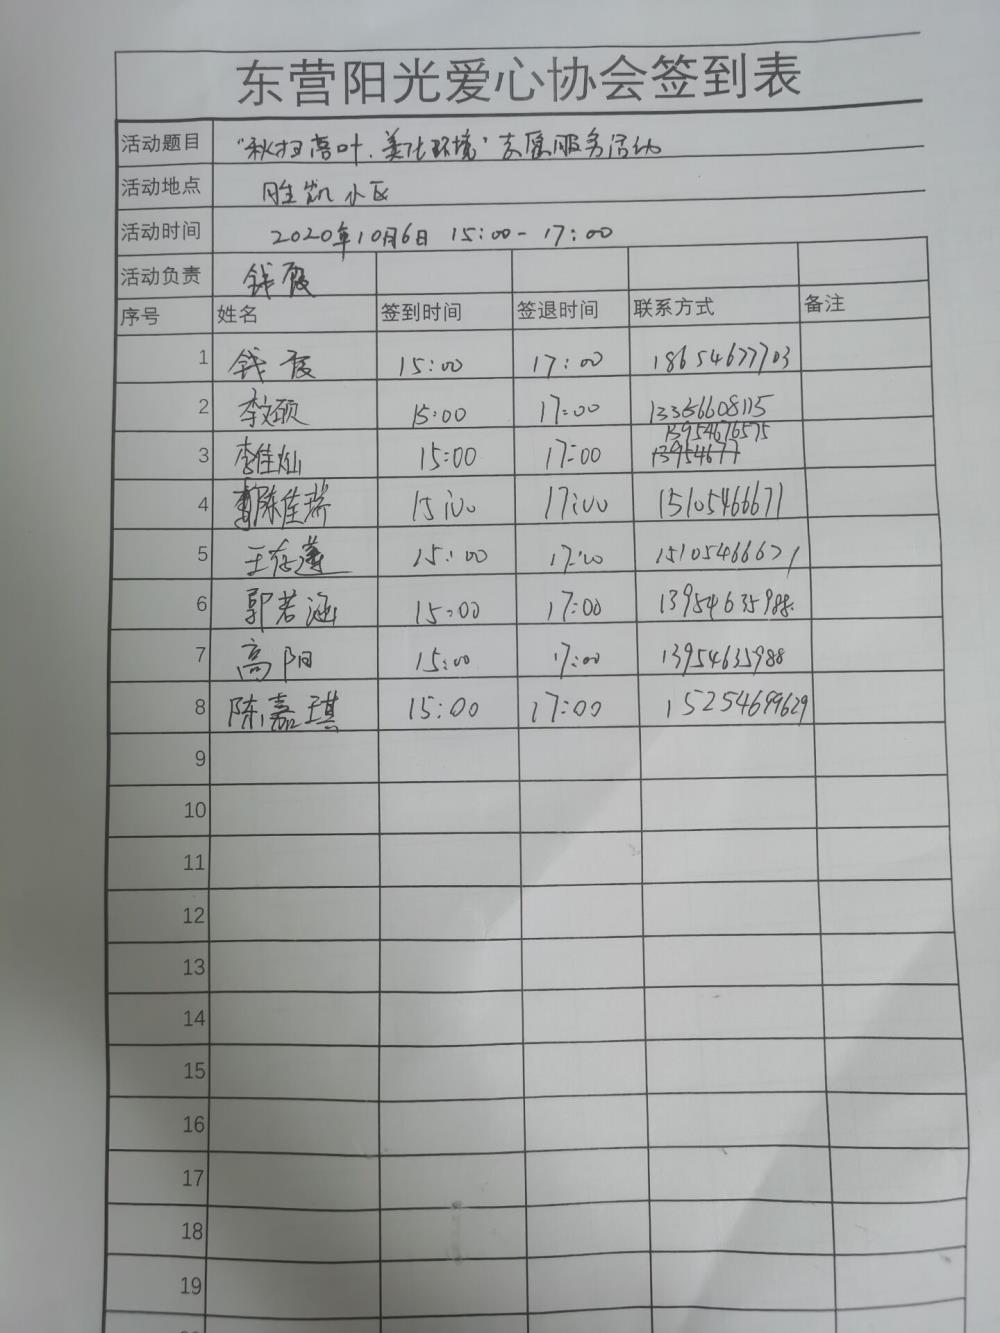 东营阳光爱心协会签到表
活动题目 “秋扫落叶.美化环境”志愿服务活动
活动地点 胜凯小区
活动时间 2020年10月6日 15:00-17:00
活动负责 钱霞
序号 姓名 签到时间 签退时间 联系方式 备注
1 钱霞 15:00 17:00 18654677703
2 李文硕 15:00 17:00 13356608115
13954676575
3 李佳灿 15:00 17:00 13954677
4 陈佳瑞 15:00 17:00 15105466671
5 王存莲 15:00 17:00 15105466671
6 郭若涵 15:00 17:00 13954635988.
7 高阳 15:00 17:00 13954635988
8 陈嘉琪 15:00 17:00 15254699629
9
10
11
12
13
14
15
16
17
18
19